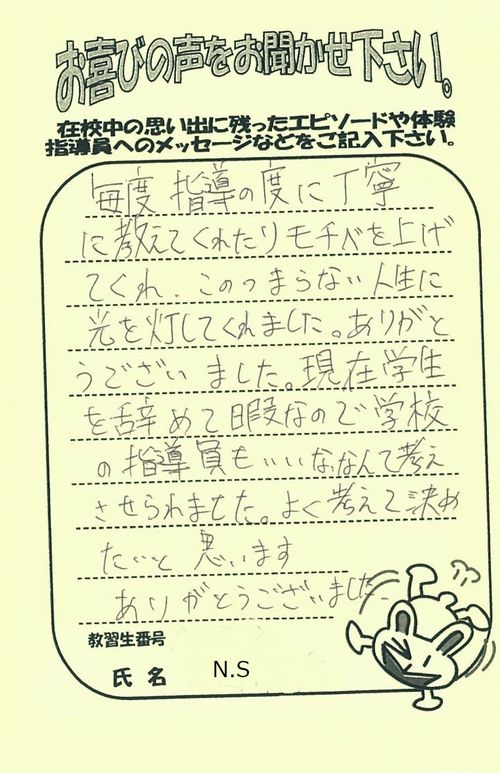 お喜びの声をお聞かせ下さい。
在校中の思い出に残ったエピソードや体験
指導員へのメッセージなどをご記入下さい。
毎度 指導の度に丁寧
に教えてくれたりモチベを上げ
てくれ、このつまらない人生に
光を灯してくれました。ありがと
うございました。現在学生
を辞めて暇なので学校
の指導員もいいな、なんて考え
させられました。よく考えて決め
たいと思います
ありがとうございました。
教習生番号
氏名 N.S